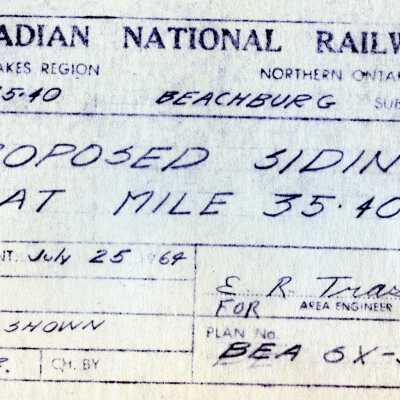 ADIAN NATIONAL RAILW
AKES REGION NORTHERN ONTA
35.40 BEACHBURG SUB
OPOSED SIDIN
AT MILE 35.40
NT July 25 1964
E R
FOR AREA ENGINEER
SHOWN
PLAN No.
BEA SX-
CH. BY